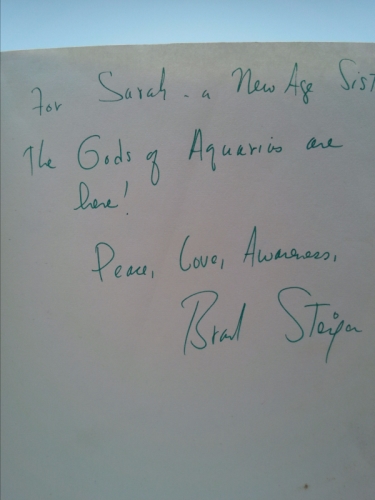 For Sarah - a New Age Sist
The Gods of Aquarius are
here!
Peace, Love, Awareness,
Brad Steiger